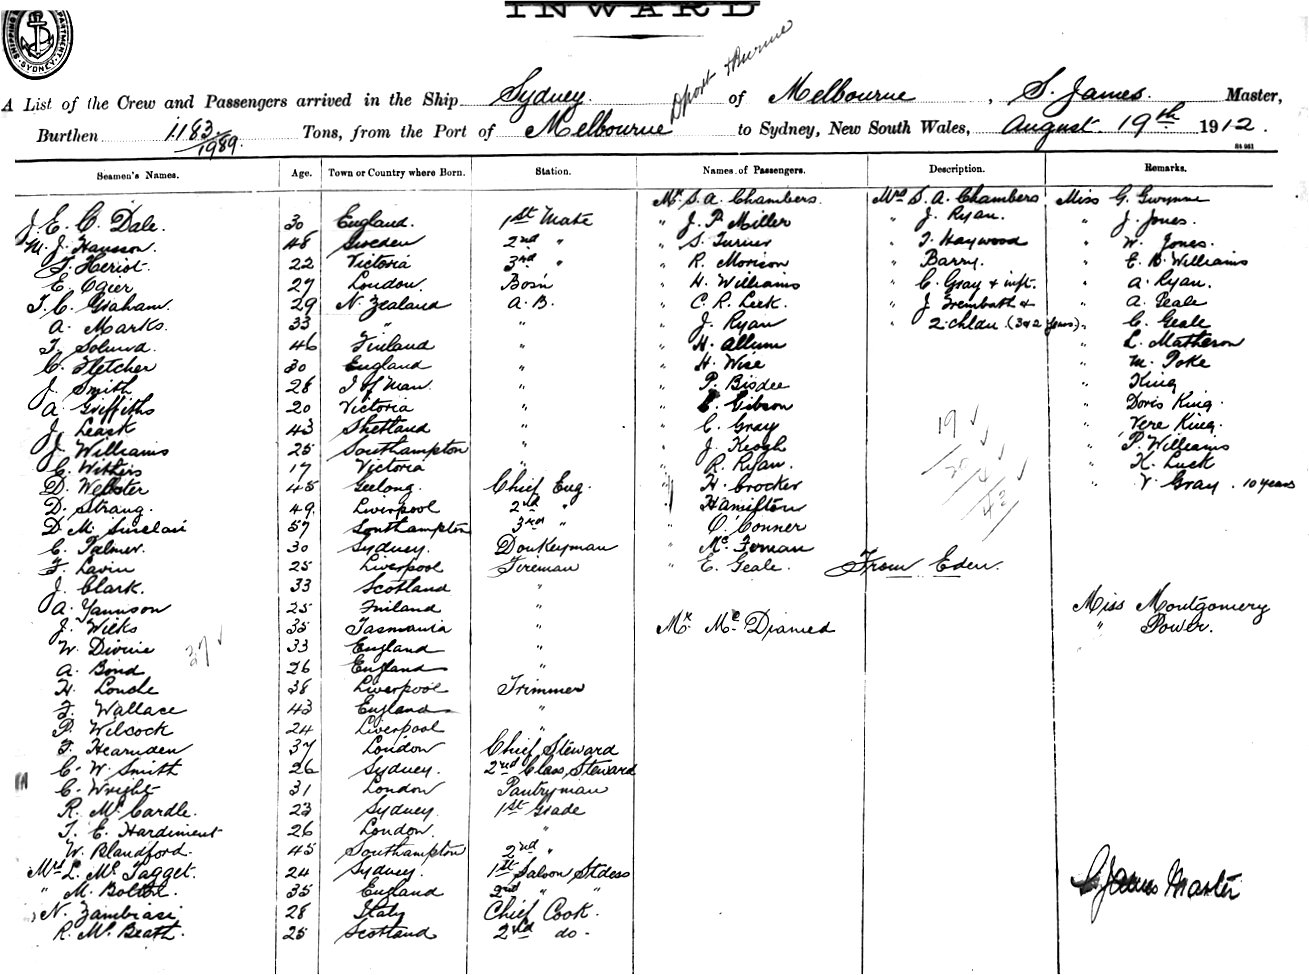 INWARD
SHIPPING DEPARTMENT. SYDNEY.
Dport & Burnie
A List of the Crew and Passengers arrived in the Ship Sydney of Melbourne, S. James. Master,
Burthen 1183/1989. Tons, from the Port of Melbourne to Sydney, New South Wales, August 19th 1912.
Seamen's Names. Age. Town or Country where Born. Station. Names of Passengers. Description. Remarks.
Mr S. A. Chambers. Mrs S. A. Chambers Miss G. Gwynne
J. E. C. Dale. 30 England. 1st Mate " J. P. Miller " J. Ryan. " J. Jones.
M. J. Hansson. 48 Sweden 2nd " " S. Turner " T. Haywood " W. Jones.
F. Heriot. 22 Victoria 3rd " " R. Morison " Barry. " E. B. Williams
E. Ogier 27 London. Bosn " H. Williams " C. Gray & inft. " A. Ryan.
T. C. Graham. 29 N. Zealand A. B. " C. R. Leek. " J. Trembath & " A. Geale
A. Marks. 33 " " " J. Ryan " 2 chldn (3 & 2 years). " C. Geale
T. 46 Finland " " H. Allum " L. Matheson
C. Fletcher 30 England " " H. Wise " M. Poke
J. Smith 28 I of Man. " " P. Bisdee " King
A. Griffiths 20 Victoria " " C. Gibson " Doris King.
J. Leask 43 Shetland " " C. Gray 19 " Vere King.
J. Williams 25 Southampton " " J. Keogh " P. Williams
C. Withers 17 Victoria " " R. Ryan. 20 4 " K. Luck
D. Webster 45 Geelong. Chief Eng. " H. Crocker 43 " V. Gray. 10 years
D. Strang. 49 Liverpool 2nd " " Hamilton
D. M. Sinclair 57 Southampton 3rd " " O. Conner
C. Palmer. 30 Sydney. Donkeyman " Mc Fernan
F. Lavin 25 Liverpool Fireman " E. Geale. From Eden.
J. Clark. 33 Scotland "
A. Yannson 25 Finland " Miss Montgomery
J. Wilks 35 Tasmania " Mr Mc Diamed " Power.
W. Divine 33 England " 37
A. Bond 26 England "
H. 38 Liverpool Trimmer
F. Wallace 43 England "
P. Wilcock 24 Liverpool "
F. Hearnden 37 London Chief Steward
C. W. Smith 26 Sydney. 2nd Class Steward
C. Wright 31 London Pantryman
R. Mc Cardle. 23 Sydney 1st Grade
T. E. Hardiment 26 London. "
W. Blandford. 45 Southampton 2nd "
Mrs L. Mc Tagget. 24 Sydney. 1st Saloon Stdess
" M. Bolton. 35 England 2nd " "
N. Zambiasi 28 Italy Chief Cook.
R. Mc Beath. 25 Scotland 2nd do.
James Master